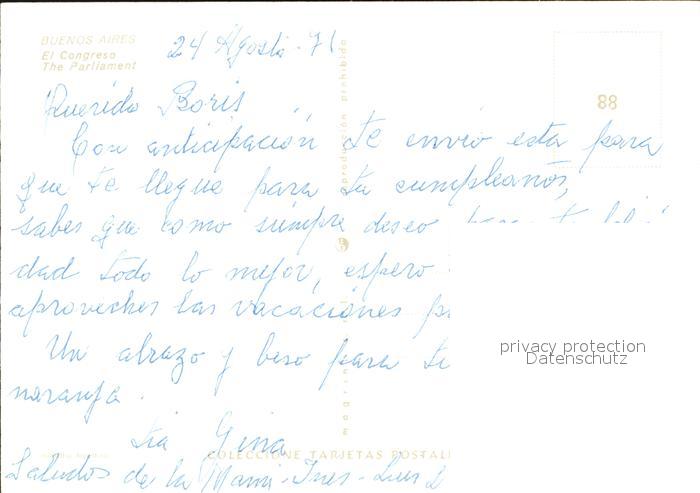 BUENOS AIRES
El Congreso
The Parliament
24 Agosto - 71
88
Querido Boris
Con anticipación te envío esta para
que te llegue para tu cumpleaños,
sabes que como siempre deseo
dad todo lo mejor, espero
aproveches las vacaciones
Un abrazo y beso para
naranja.
tía Gina
Saludos de la Mami - Ines - Luis
COLECCIONE TARJETAS POSTAL
reproducción prohibida
privacy protection
Datenschutz